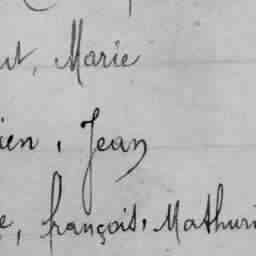 ut, Marie
ien, Jean
e, françois, Mathuri